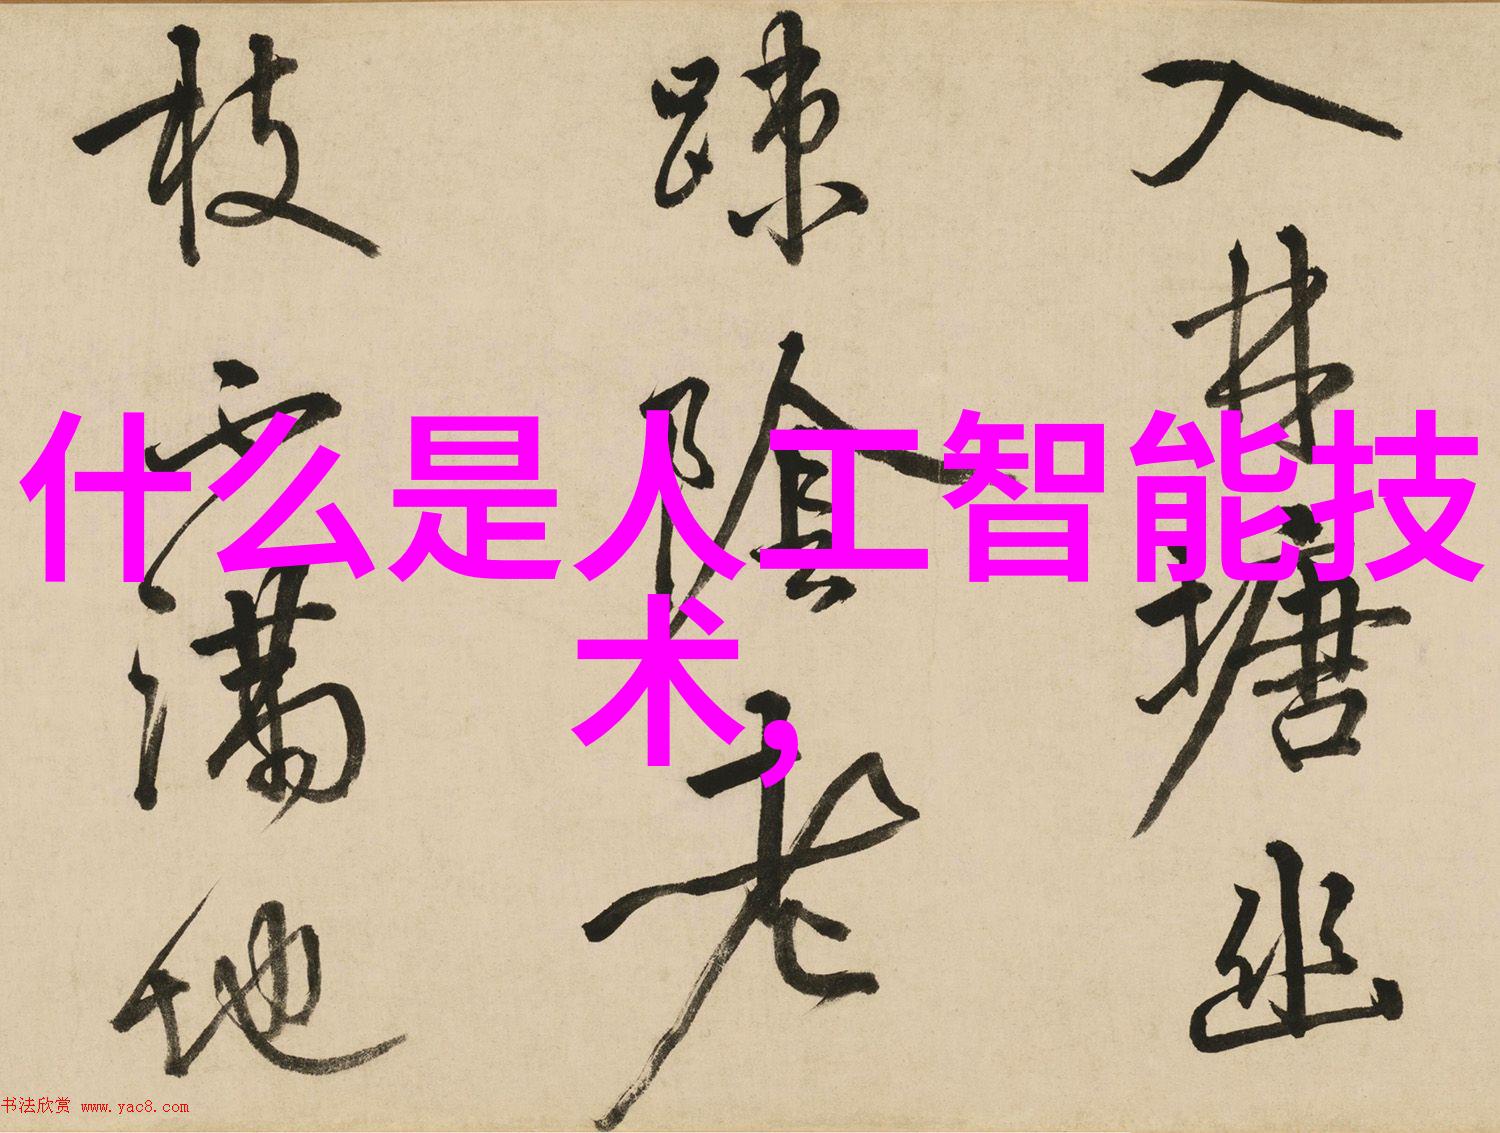 什么是人工智能技
术,
入林塘幽
踈陰老
枝滿地
书法欣赏 www.yac8.com